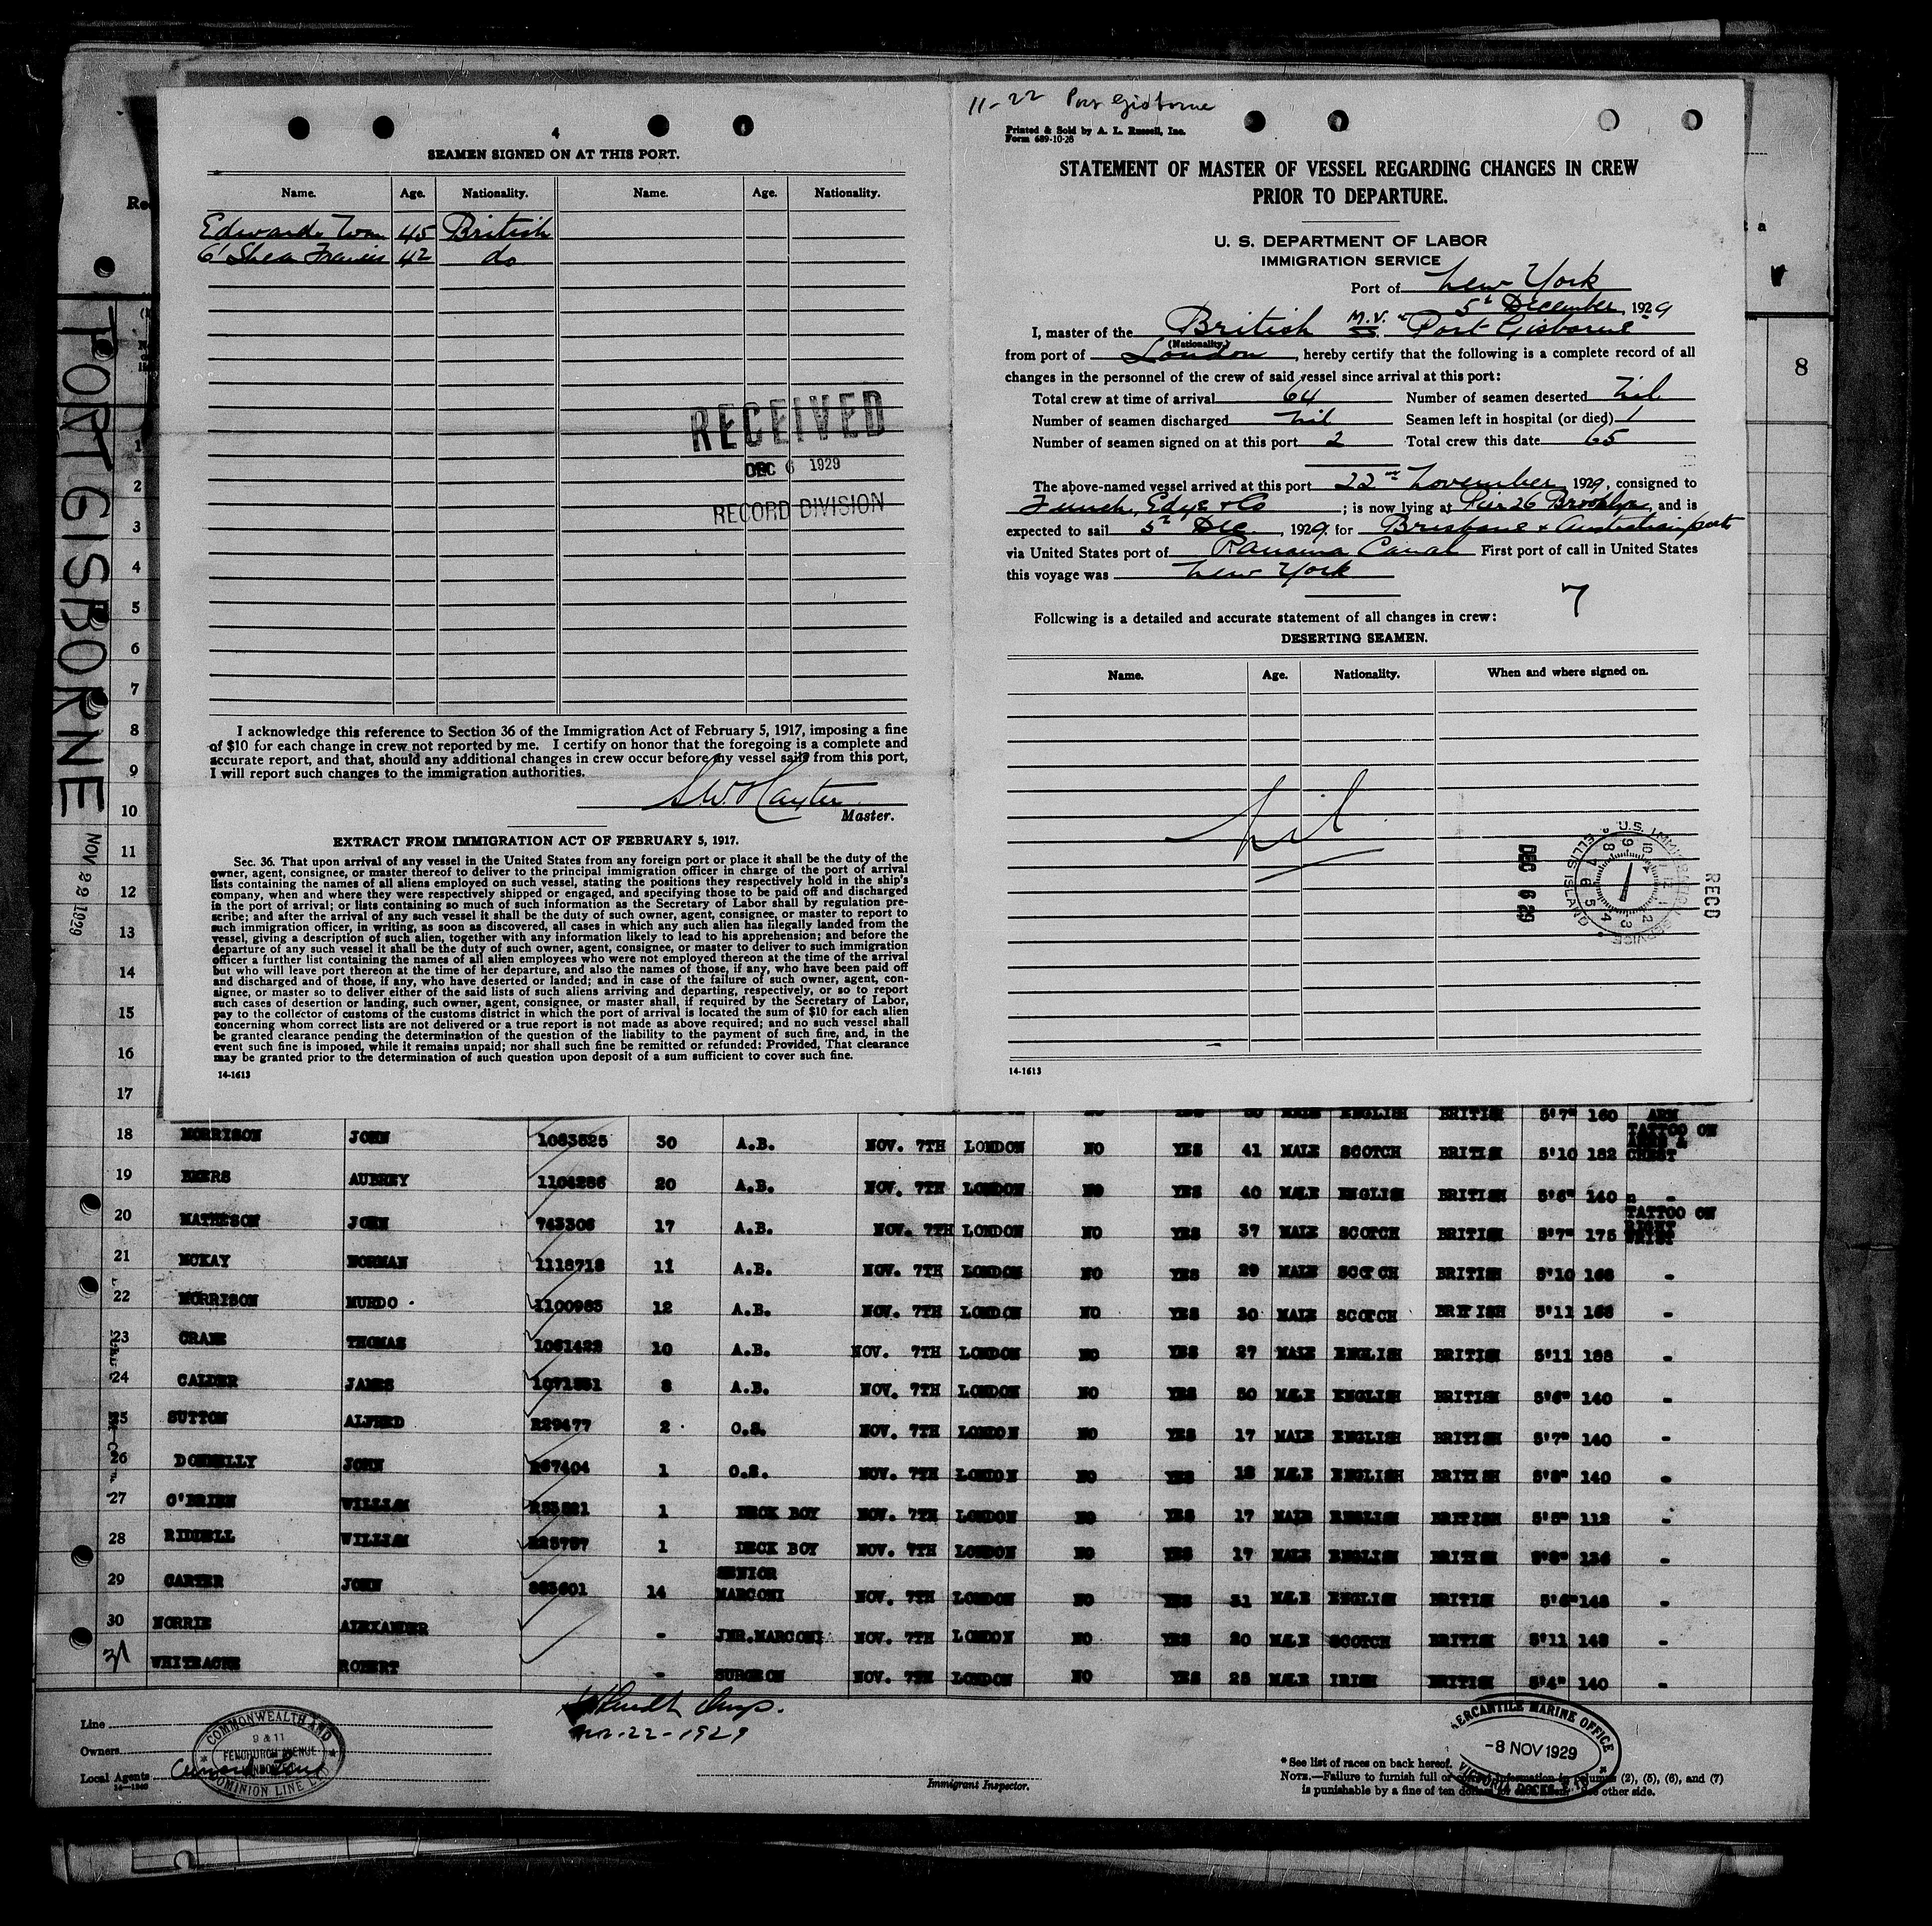 4
SEAMEN SIGNED ON AT THIS PORT.
Name. Age. Nationality. Name. Age. Nationality.
Edwards Wm 45 British
O'Shea Francis 42 do
RECEIVED
DEC 6 1929
RECORD DIVISION
I acknowledge this reference to Section 36 of the Immigration Act of February 5, 1917, imposing a fine
of $10 for each change in crew not reported by me. I certify on honor that the foregoing is a complete and
accurate report, and that, should any additional changes in crew occur before my vessel sails from this port,
I will report such changes to the immigration authorities.
Master.
EXTRACT FROM IMMIGRATION ACT OF FEBRUARY 5, 1917.
Sec. 36. That upon arrival of any vessel in the United States from any foreign port or place it shall be the duty of the
owner, agent, consignee, or master thereof to deliver to the principal immigration officer in charge of the port of arrival
lists containing the names of all aliens employed on such vessel, stating the positions they respectively hold in the ship's
company, when and where they were respectively shipped or engaged, and specifying those to be paid off and discharged
in the port of arrival; or lists containing so much of such information as the Secretary of Labor shall by regulation pre-
scribe; and after the arrival of any such vessel it shall be the duty of such owner, agent, consignee, or master to report to
such immigration officer, in writing, as soon as discovered, all cases in which any such alien has illegally landed from the
vessel, giving a description of such alien, together with any information likely to lead to his apprehension; and before the
departure of any such vessel it shall be the duty of such owner, agent, consignee, or master to deliver to such immigration
officer a further list containing the names of all alien employees who were not employed thereon at the time of the arrival
but who will leave port thereon at the time of her departure, and also the names of those, if any, who have been paid off
and discharged and of those, if any, who have deserted or landed; and in case of the failure of such owner, agent, con-
signee, or master so to deliver either of the said lists of such aliens arriving and departing, respectively, or so to report
such cases of desertion or landing, such owner, agent, consignee, or master shall, if required by the Secretary of Labor,
pay to the collector of customs of the customs district in which the port of arrival is located the sum of $10 for each alien
concerning whom correct lists are not delivered or a true report is not made as above required; and no such vessel shall
be granted clearance pending the determination of the question of the liability to the payment of such fine, and, in the
event such fine is imposed, while it remains unpaid; nor shall such fine be remitted or refunded: Provided, That clearance
may be granted prior to the determination of such question upon deposit of a sum sufficient to cover such fine.
14-1613
11-22 Port Gisborne
Printed & Sold by A. L. Russell, Inc.
Form 689-10-28
STATEMENT OF MASTER OF VESSEL REGARDING CHANGES IN CREW
PRIOR TO DEPARTURE.
U. S. DEPARTMENT OF LABOR
IMMIGRATION SERVICE
Port of New York
5th December, 1929
I, master of the British M.V. "Port Gisborne"
(Nationality.)
from port of London, hereby certify that the following is a complete record of all
changes in the personnel of the crew of said vessel since arrival at this port:
Total crew at time of arrival 64 Number of seamen deserted Nil
Number of seamen discharged Nil Seamen left in hospital (or died) 1
Number of seamen signed on at this port 2 Total crew this date 65
The above-named vessel arrived at this port 22nd November, 1929, consigned to
Funch, Edye & Co; is now lying at Pier 26 Brooklyn, and is
expected to sail 5th Dec, 1929. for Brisbane & Australian ports
via United States port of Panama Canal First port of call in United States
this voyage was New York
7
Following is a detailed and accurate statement of all changes in crew:
DESERTING SEAMEN.
Name. Age. Nationality. When and where signed on.
Nil
DEC 6 29
U.S. IMMIGRATION SERVICE ELLIS ISLAND
RECD
14-1613
PORT GISBORNE
NOV 22 1929
8
1
2
3
4
5
6
7
8
9
10
11
12
13
14
15
16
17 ENGLISH BRITISH 5'7" 160 ARM
18 MORRISON JOHN 1063525 30 A.B. NOV. 7TH LONDON NO YES 41 MALE SCOTCH BRITISH 5'10 182 TATTOO ON CHEST
19 AUBREY 1104286 20 A.B. NOV. 7TH LONDON NO YES 40 MALE ENGLISH BRITISH 5'6" 140
20 MATHESON JOHN 743306 17 A.B. NOV. 7TH LONDON NO YES 37 MALE SCOTCH BRITISH 5'7" 175 TATTOO ON RIGHT WRIST
21 MCKAY NORMAN 1118718 11 A.B. NOV. 7TH LONDON NO YES 29 MALE SCOTCH BRITISH 5'10 168 -
22 MORRISON MURDO 1100985 12 A.B. NOV. 7TH LONDON NO YES 30 MALE SCOTCH BRITISH 5'11 168 -
23 THOMAS 1061422 10 A.B. NOV. 7TH LONDON NO YES 27 MALE ENGLISH BRITISH 5'11 188 -
24 CALDER JAMES 8 A.B. NOV. 7TH LONDON NO YES 50 MALE ENGLISH BRITISH 5'6" 140 -
25 SUTTON ALFRED R29477 2 O.S. NOV. 7TH LONDON NO YES 17 MALE ENGLISH BRITISH 5'7" 140 -
26 DONNELLY JOHN R67404 1 O.S. NOV. 7TH LONDON NO YES 18 MALE ENGLISH BRITISH 5'8" 140 -
27 O'BRIEN WILLIAM 1 DECK BOY NOV. 7TH LONDON NO YES 17 MALE ENGLISH BRITISH 5'5" 112 -
28 RIDDELL WILLIAM 1 DECK BOY NOV. 7TH LONDON NO YES 17 MALE ENGLISH BRITISH 136 -
29 CARTER JOHN 14 SENIOR MARCONI NOV. 7TH LONDON NO YES 31 MALE ENGLISH BRITISH 5'6" 148 -
30 NORRIE ALEXANDER - JNR.MARCONI NOV. 7TH LONDON NO YES 20 MALE SCOTCH BRITISH 5'11 148 -
31 WHITEACRE ROBERT - SURGEON NOV. 7TH LONDON NO YES 25 MALE IRISH BRITISH 5'4" 140 -
Line
Owners
Local Agents
14-1240
COMMONWEALTH AND DOMINION LINE LTD
9 & 11
FENCHURCH AVENUE
LONDON
Nov-22-1929
Immigrant Inspector.
MERCANTILE MARINE OFFICE
-8 NOV 1929
VICTORIA DOCKS
* See list of races on back hereof.
NOTE.—Failure to furnish full or correct information in columns (2), (5), (6), and (7)
is punishable by a fine of ten dollars for each alien. See other side.